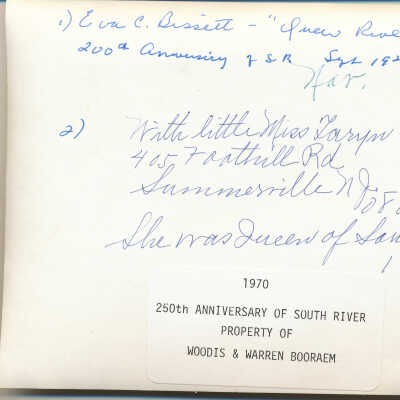 1) Eva C. Bissett - "Queen Rive
200th Anniversary of S.R Sept 192
Nov.
2) With little Miss Taryn
405 Foothill Rd
Summerville NJ 08
She was Queen of Sou
1
1970
250th ANNIVERSARY OF SOUTH RIVER
PROPERTY OF
WOODIS & WARREN BOORAEM